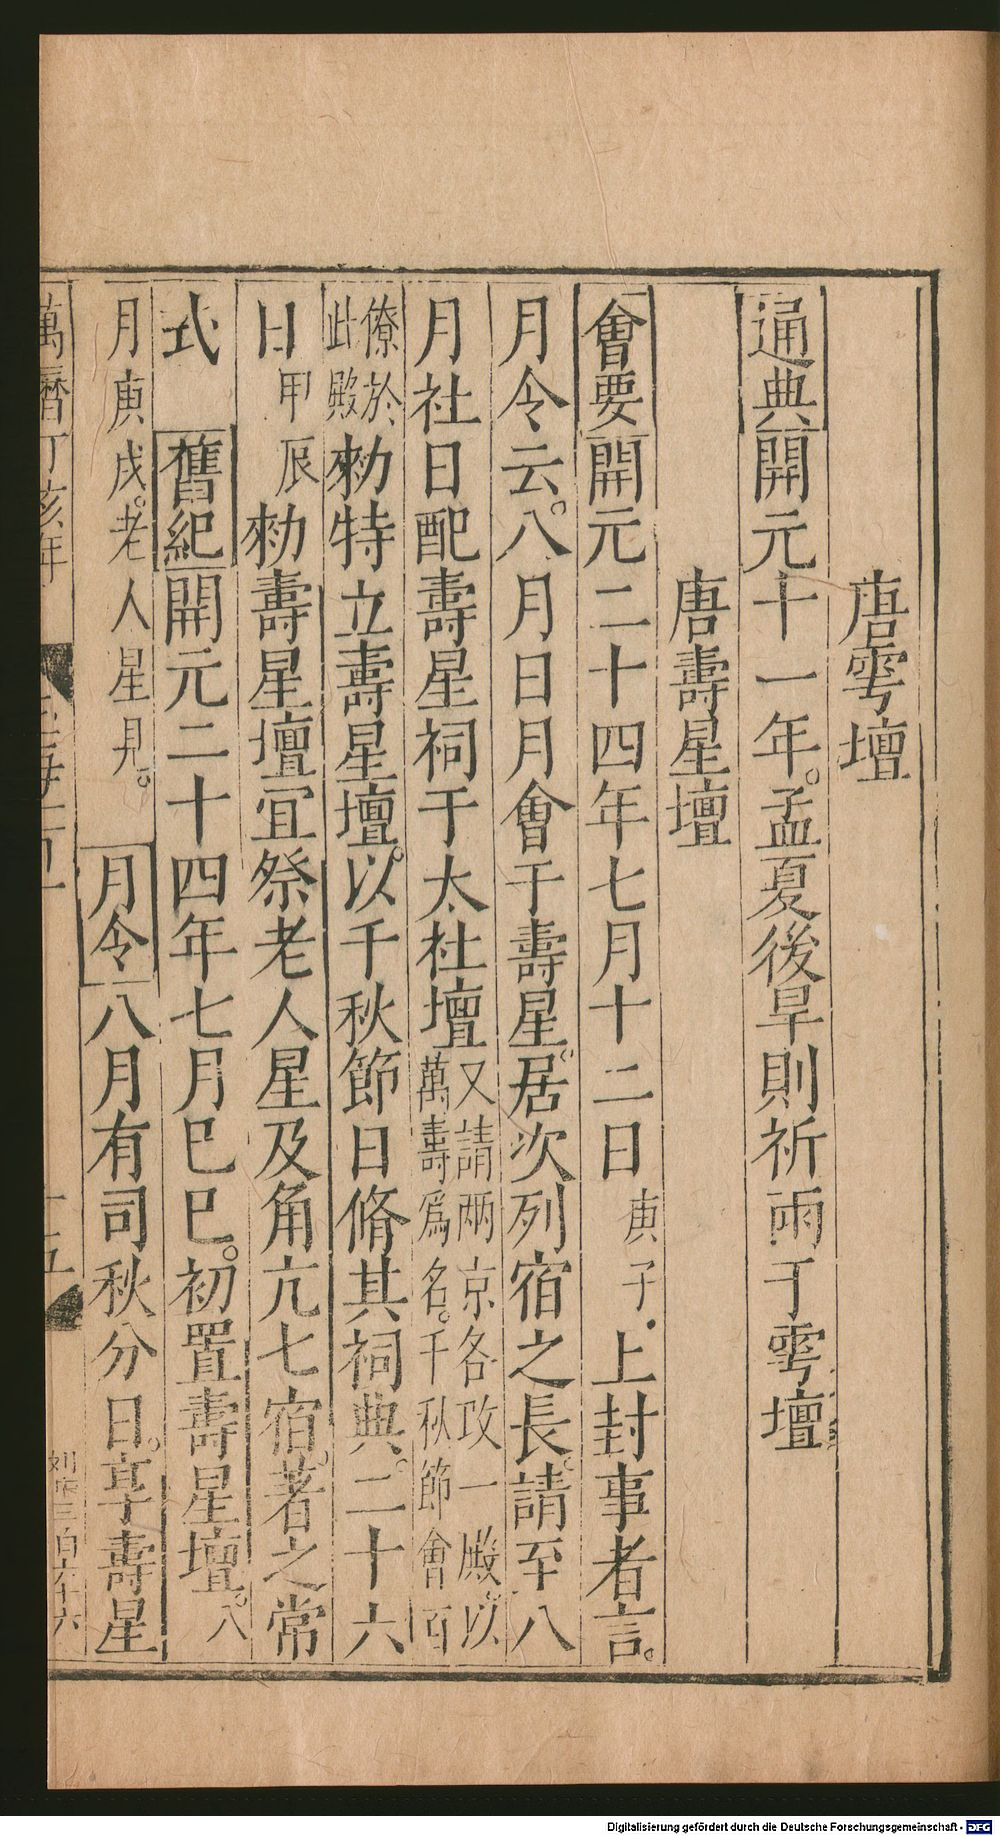 唐雩壇
通典開元十一年。孟夏後旱則祈雨于雩壇
唐壽星壇
會要開元二十四年七月十二日庚子.上封事者言。
月令云。八月日月會于壽星。居次列宿之長。請至八
月社日配壽星祠于太社壇又請兩京各攺一殿。以萬壽爲名。千秋節會百
僚於此殿勑特立壽星壇。以千秋節日脩其祠典。二十六
日甲辰勑壽星壇宜祭老人星及角亢七宿。著之常
式舊紀開元二十四年七月巳巳。初置壽星壇。八
月庚戌。老人星見。月令八月有司秋分日。享壽星
萬曆丁亥年
十五
Digitalisierung gefördert durch die Deutsche Forschungsgemeinschaft - DFG